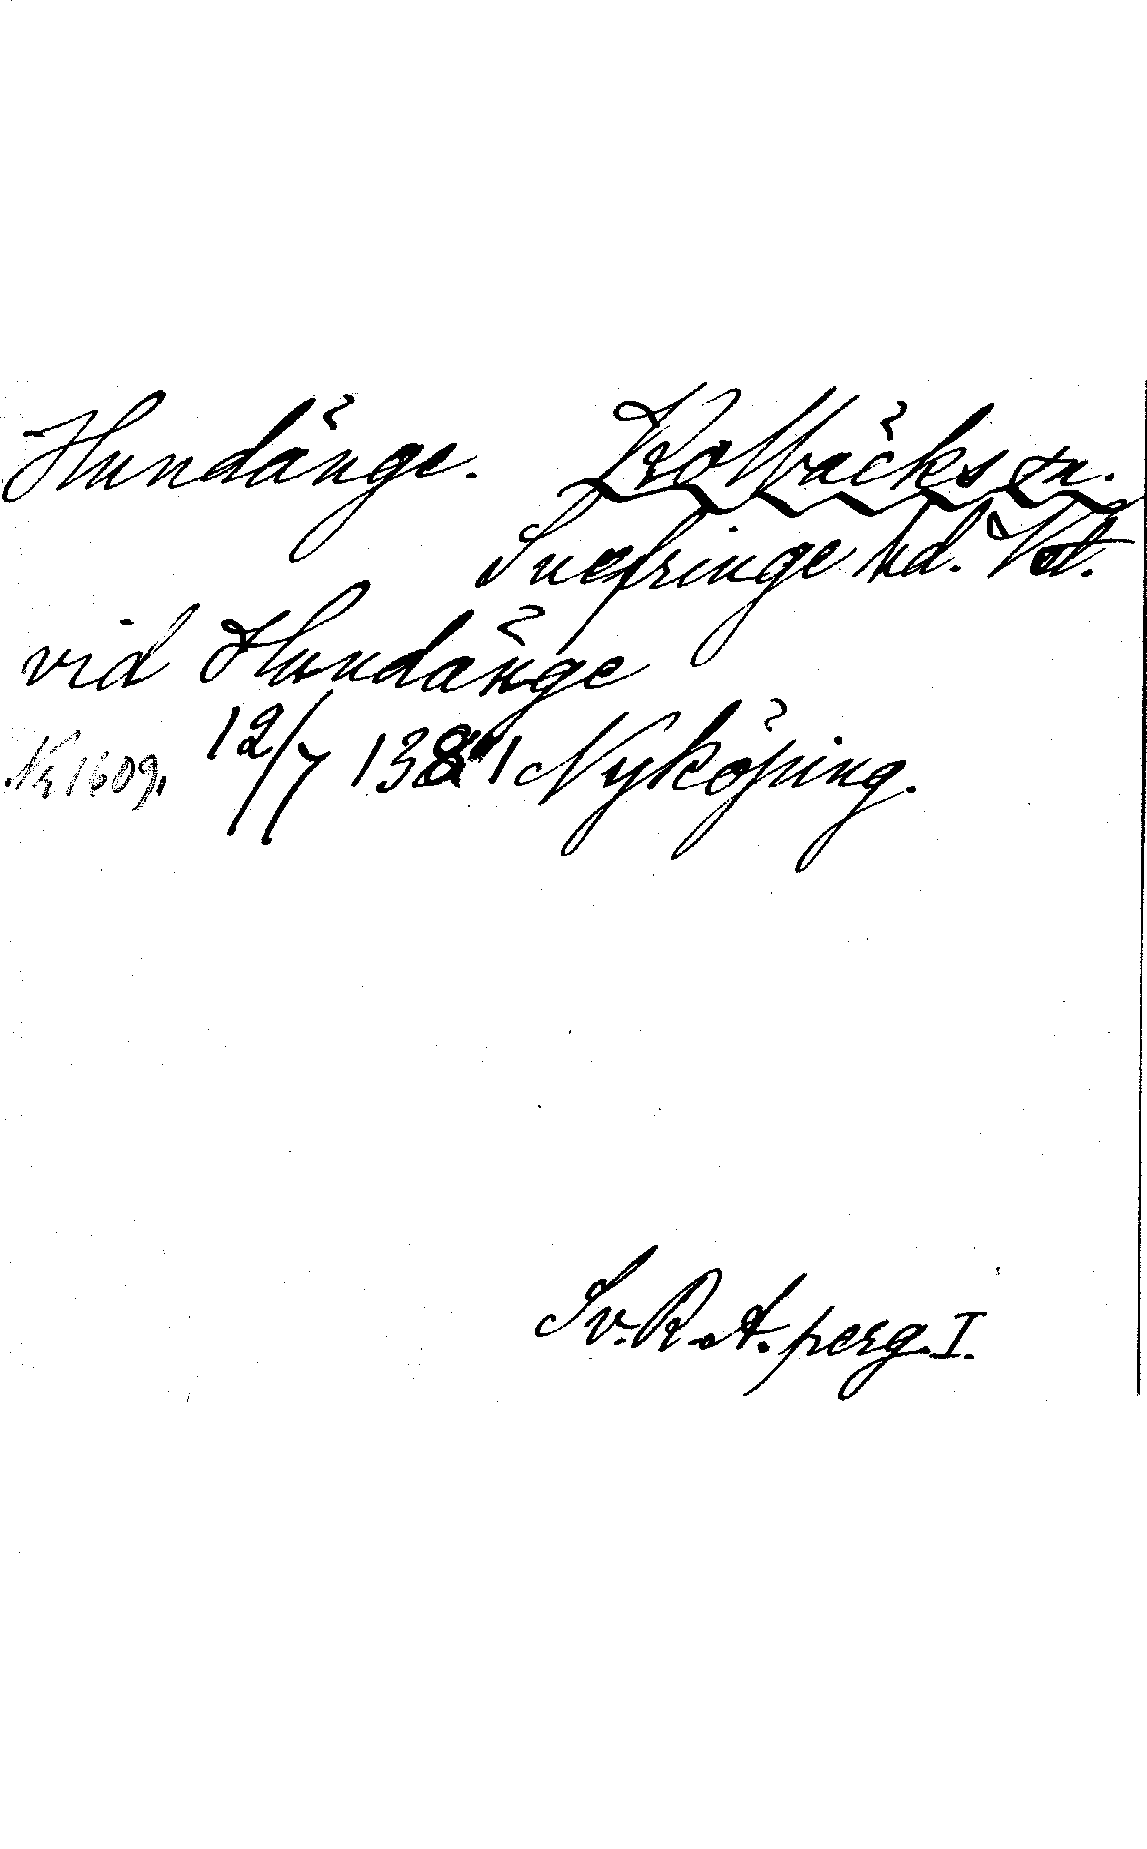 Hundänge. Kolbäcks sn.
Snefringe hd. Vstl.
vid Hundänge
Nr 1609. 12/7 1381 Nyköping.
Sv. R. A. perg. I.